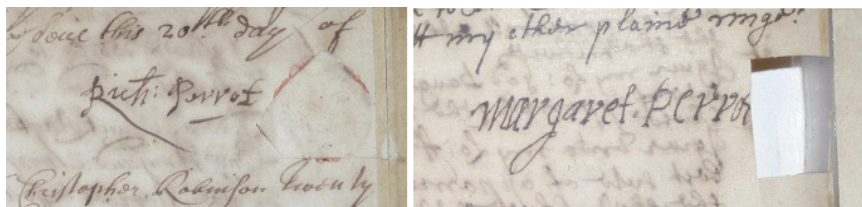 this 20th day of
Rich: Perrot
Christopher Robinson twenty
my other plaine ringe
Margaret Perrot